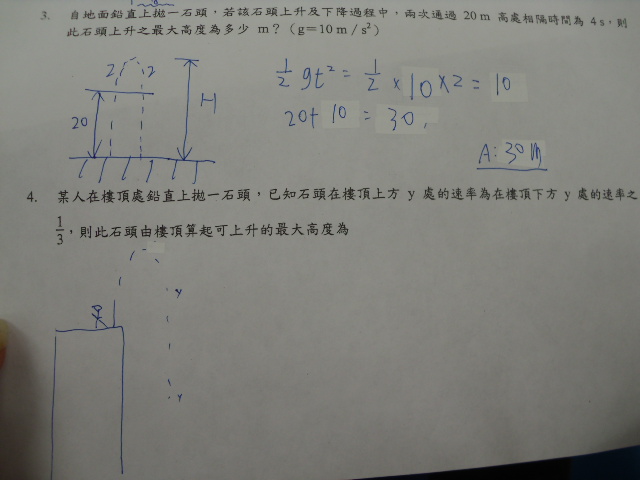 3. 自地面鉛直上拋一石頭，若該石頭上升及下降過程中，兩次通過 20 m 高處相隔時間為 4 s，則
此石頭上升之最大高度為多少 m？（g＝10 m / s²）
2 2
20 H
1/2 gt² = 1/2 × 10 × 2 = 10
20 + 10 = 30.
A: 30 m
4. 某人在樓頂處鉛直上拋一石頭，已知石頭在樓頂上方 y 處的速率為在樓頂下方 y 處的速率之
1/3，則此石頭由樓頂算起可上升的最大高度為
y
y